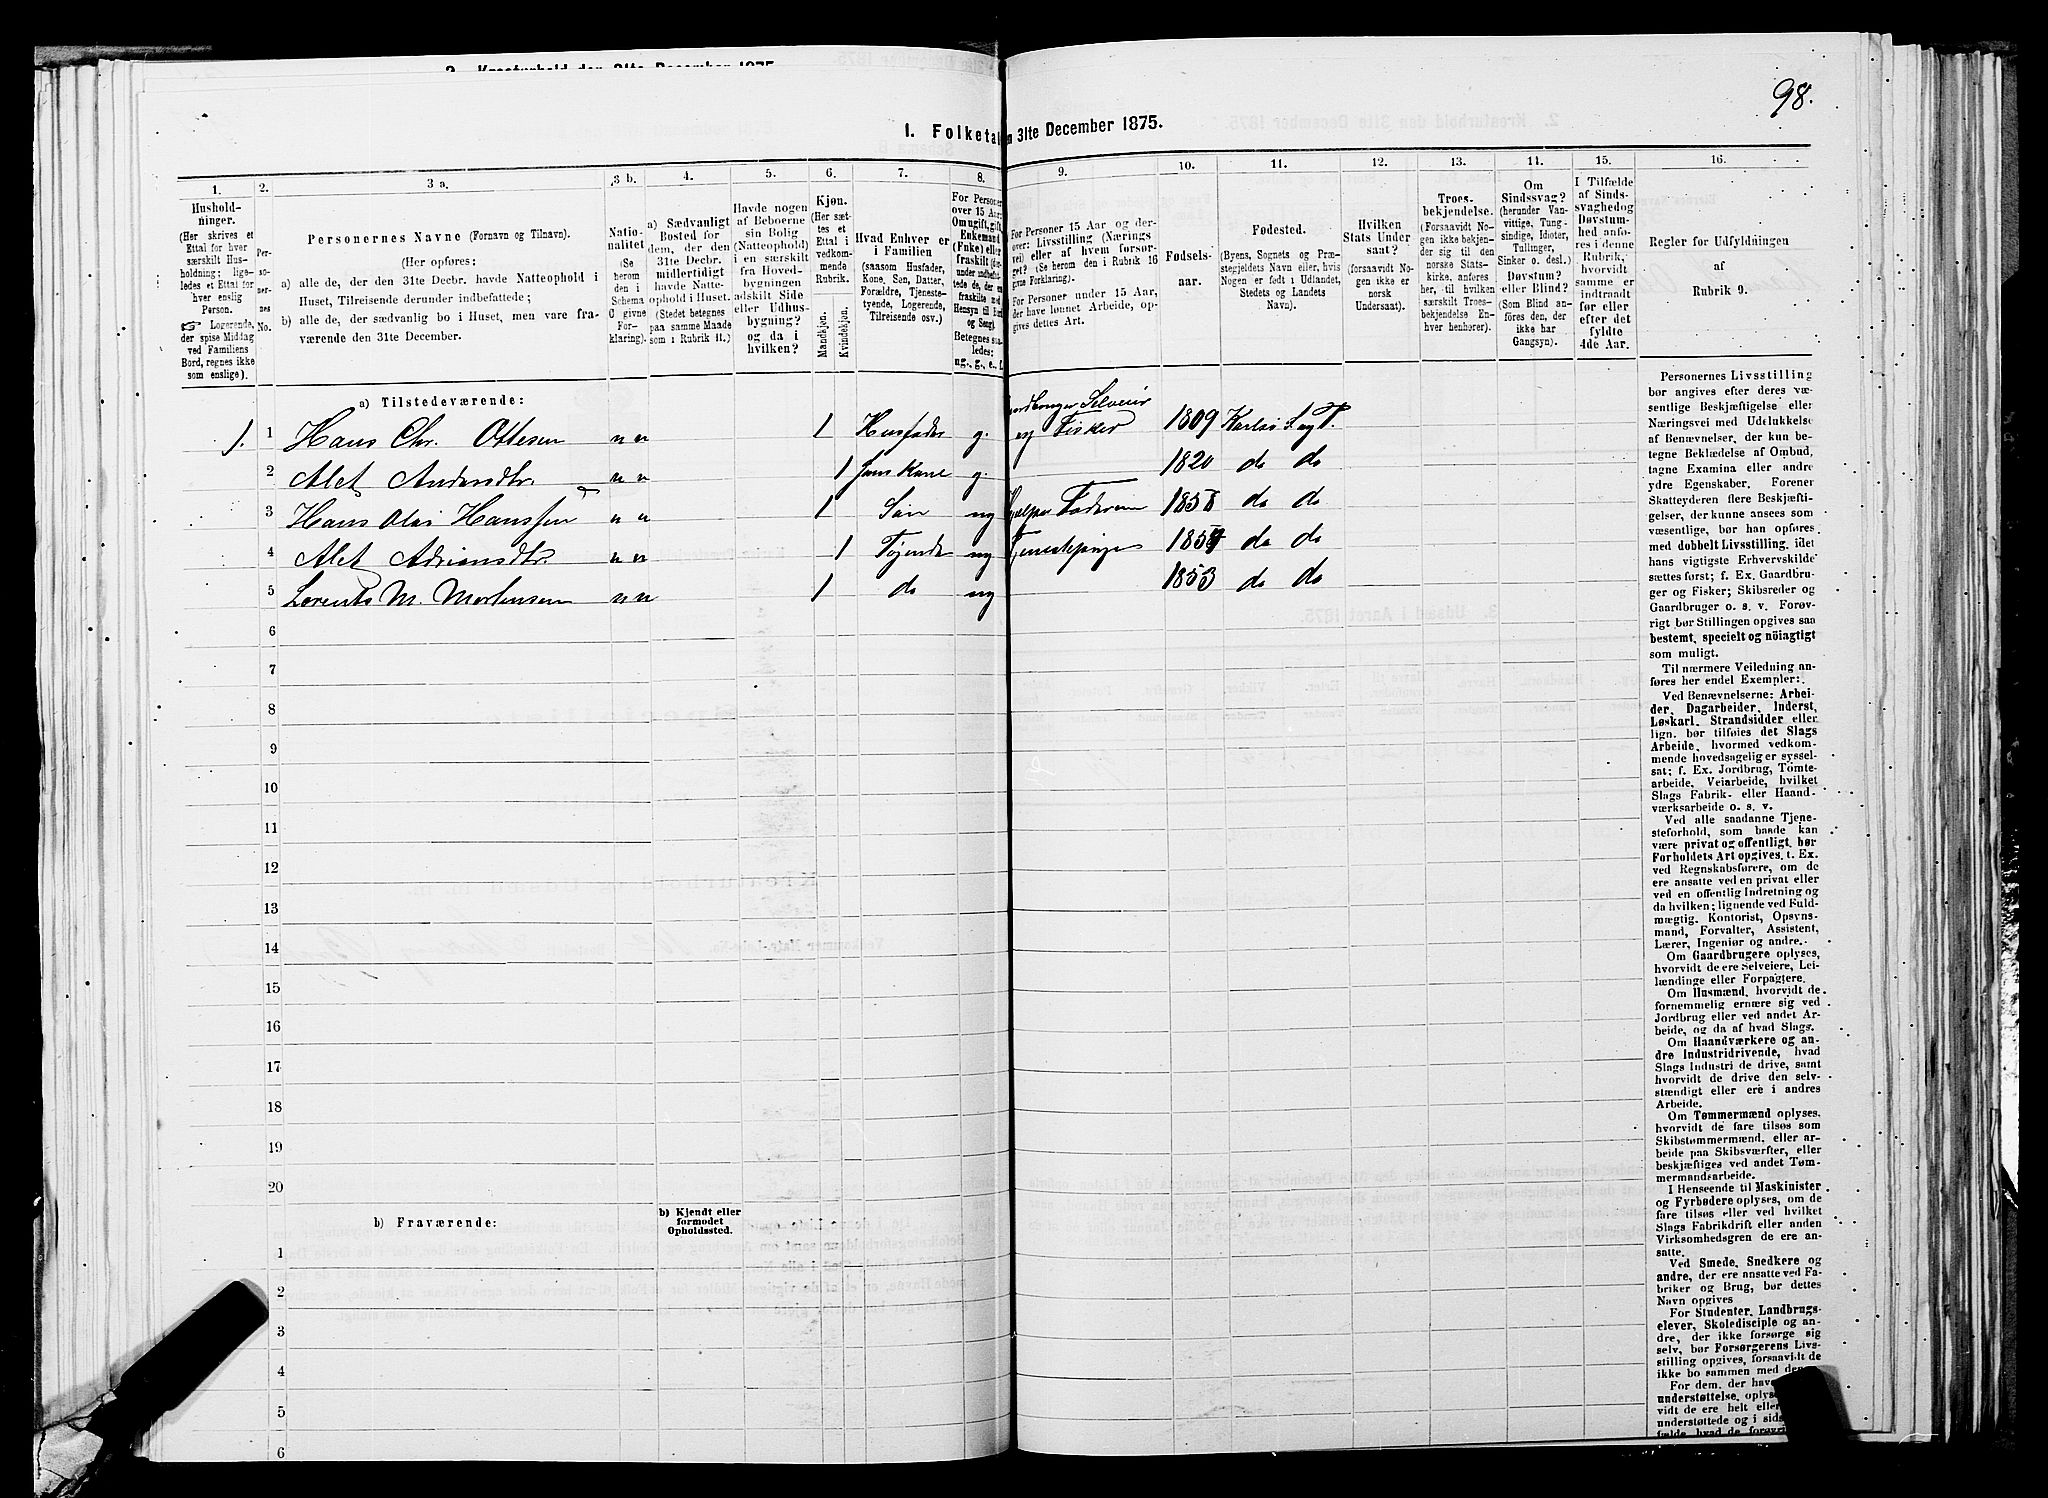 98.
I. Folketal
n 31te December 1875.
1. 2. 3 a. 3 b. 4. 5. 6. 7. 8. 9. 10. 11. 12. 13. 14. 15. 16.
Hushold-
ninger.
(Her skrives et
Ettal for hver
særskilt Hus-
holdning; lige-
ledes et Ettal for
hver enslig
Person.
☞ Logerende,
der spise Middag
ved Familiens
Bord, regnes ikke
som enslige).
Per-
so-
ner-
nes
No.
Personernes Navne (Fornavn og Tilnavn).
(Her opføres:
a) alle de, der den 31te Decbr. havde Natteophold i
Huset, Tilreisende derunder indbefattede;
b) alle de, der sædvanlig bo i Huset, men vare fra-
værende den 31te December.
Natio-
nalitet
(Se
herom
den i
Schema
C givne
For-
klaring).
a) Sædvanligt
Bosted for
dem, der den
31te Decbr.
midlertidigt
havde Natte-
ophold i Huset.
(Stedet betegnes
paa samme Maade
som i Rubrik 11.)
Havde nogen
af Beboerne
sin Bolig
(Natteophold)
i en særskilt
fra Hoved-
bygningen
adskilt Side
eller Udhus-
bygning?
og da i
hvilken?
Kjøn.
(Her sæt-
tes et
Ettal i
vedkom-
mende
Rubrik.
Mandkjøn.
Kvindekjøn.
Hvad Enhver er
i Familien
(saasom Husfader,
Kone, Søn, Datter,
Forældre, Tjeneste-
tyende, Logerende,
Tilreisende osv.)
For Personer
over 15 Aar:
Om ugift, gift,
Enkemand
(Enke) eller
fraskilt
Betegnes saa-
ledes:
ug., g., e., f.
For Personer 15 Aar og der-
over: Livsstilling (Nærings
vei) eller af hvem forsør-
get? (Se herom den i Rubrik 16
givne Forklaring).
For Personer under 15 Aar,
der have lønnet Arbeide, op-
gives dettes Art.
Fødsels-
aar.
Fødested.
(Byens, Sognets og Præ-
stegjeldets Navn eller, hvis
Nogen er født i Udlandet,
Stedets og Landets
Navn).
Hvilken
Stats Under
saat?
(forsaavidt No-
gen ikke er
norsk
Undersaat).
Troes-
bekjendelse.
(Forsaavidt No-
gen ikke bekjen-
der sig til den
norske Stats-
kirke, anføres
her, til hvilken
særskilt Troes-
bekjendelse En-
hver henhører).
Om
Sindssvag?
(herunder Van-
vittige, Tung-
sindige, Idioter,
Tullinger,
Sinker o. desl.)
Døvstum?
eller Blind?
(Som Blind an-
føres den, der
ikke har
Gangsyn).
I Tilfælde
af Sinds-
svaghed og
Døvstum-
hed anfø-
res i denne
Rubrik,
hvorvidt
samme er
indtraadt
før eller
efter det
fyldte
4de Aar.
Regler for Udfyldningen
af
Rubrik 9.
a) Tilstedeværende:
1. 1 Hans Chr. Ottesen nn 1 Husfader g. Jordbruger Selveier
og Fisker 1809 Karlsø S og P.
2 Alet Andersdtr. nn 1 hans Kone g. 1820 do do
3 Hans Olai Hanssen nn 1 Søn ug hjelper Faderen 1858 do do
4 Alet Adriansdtr. nn 1 Tjende ug Tjenestepige do do
5 Lorents M. Mortensen nn 1 do ug 1853 do do
6
7
8
9
10
11
12
13
14
15
16
17
18
19
20
b) Fraværende:
b) Kjendt eller
formodet
Opholdssted.
1
2
3
4
5
6
Personernes Livsstilling
bør angives efter deres væ-
sentlige Beskjæftigelse eller
Næringsvei med Udelukkelse
af Benævnelser, der kun be-
tegne Beklædelse af Ombud,
tagne Examina eller andre
ydre Egenskaber. Forener
Skatteyderen flere Beskjæfti-
gelser, der kunne ansees som
væsentlige, bør han opføres
med dobbelt Livsstilling, idet
hans vigtigste Erhvervskilde
sættes først; f. Ex. Gaardbru-
ger og Fisker; Skibsreder og
Gaardbruger o. s. v. Forøv-
rigt bør Stillingen opgives saa
bestemt, specielt og nöiagtigt
som muligt.
Til nærmere Veiledning an-
føres her endel Exempler:
Ved Benævnelserne: Arbei-
der, Dagarbeider, Inderst,
Løskarl, Strandsidder eller
lign. bør tilføies det Slags
Arbeide, hvormed vedkom-
mende hovedsagelig er syssel-
sat; f. Ex. Jordbrug, Tömte-
arbeide, Veiarbeide, hvilket
Slags Fabrik- eller Haand-
værksarbeide o. s. v.
Ved alle saadanne Tjene-
steforhold, som baade kan
være privat og offentligt, bør
Forholdets Art opgives, t. Ex.
ved Regnskabsførere, om de
ere ansatte ved en privat eller
ved en offentlig Indretning og
da hvilken; lignende ved Fuld-
mægtig, Kontorist, Opsyns-
mand, Forvalter, Assistent,
Lærer, Ingeniør og andre.
Om Gaardbrugere oplyses,
hvorvidt de ere Selveiere, Lei-
lændinge eller Forpagtere.
Om Husmænd, hvorvidt de
fornemmelig ernære sig ved
Jordbrug eller ved andet Ar-
beide, og da af hvad Slags.
Om Haandværkere og an-
dre Industridrivende, hvad
Slags Industri de drive, samt
hvorvidt de drive den selv-
stændigt eller ere i andres
Arbeide.
Om Tømmermænd oplyses,
hvorvidt de fare tilsøs som
Skibstømmermænd, eller ar-
beide paa Skibsværfter, eller
beskjæftiges ved andet Tøm-
mermandsarbeide.
I Henseende til Maskinister
og Fyrbødere oplyses, om de
fare tilsøs eller ved hvilket
Slags Fabrikdrift eller anden
Virksomhedsgren de ere an-
satte.
Ved Smede, Snedkere og
andre, der ere ansatte ved Fa-
briker og Brug, bør dettes
Navn opgives
For Studenter, Landbrugs-
elever, Skoledisciple og an-
dre, der ikke forsørge sig
selv, bør Forsørgerens Livs-
stilling opgives, forsaavidt de
ikke bo sammen med
For dem, der
understøttelse, oplys
vidt de ere helt eller
understøttede og i sids